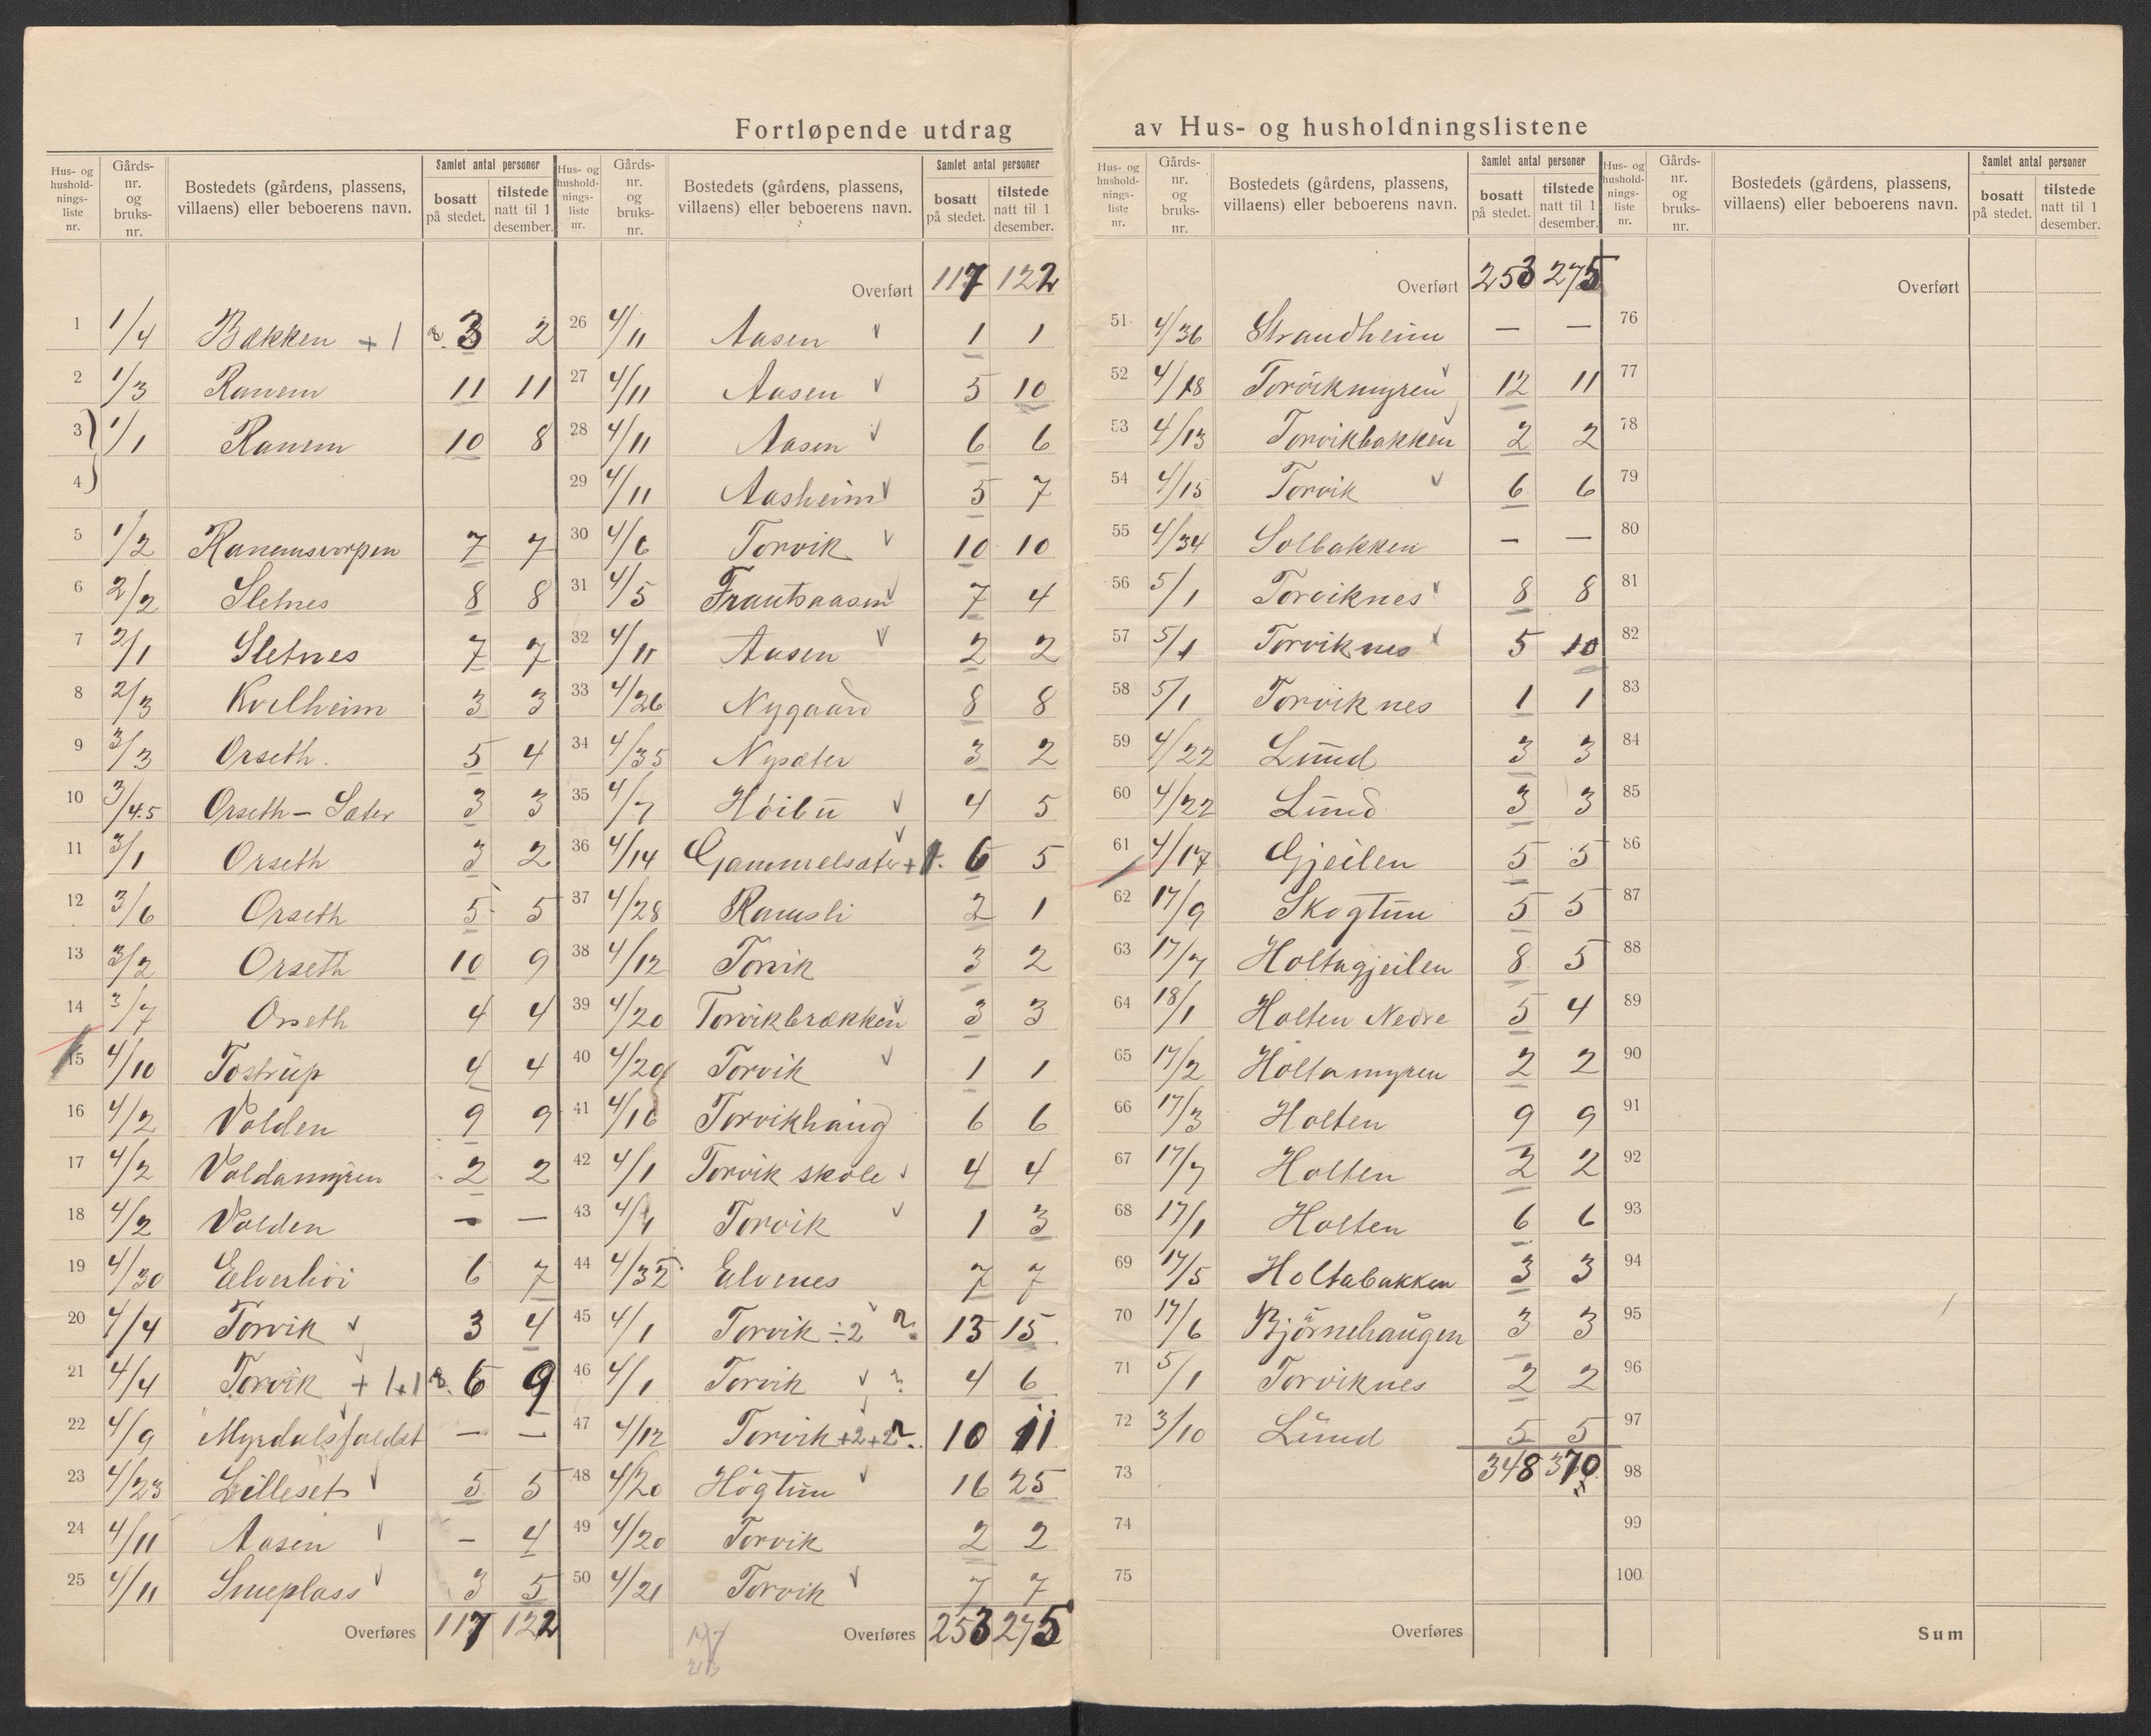 Fortløpende utdrag av Hus- og husholdningslistene
Hus- og husholdnings-liste nr. | Gårds-nr. og bruks-nr. | Bostedets (gårdens, plassens, villaens) eller beboerens navn. | Samlet antal personer | bosatt på stedet. | tilstede natt til 1 desember.
1 1/4 Bækken +1 3 2
2 1/3 Ranem 11 11
3 1/1 Ranem 10 8
4
5 1/2 Ranemsvorpen 7 7
6 2/2 Sletnes 8 8
7 2/1 Sletnes 7 7
8 2/3 Kvelheim 3 3
9 3/3 Orseth. 5 4
10 3/4.5 Orseth - Sæter 3 3
11 3/1 Orseth 3 2
12 3/6 Orseth 5 5
13 3/2 Orseth 10 9
14 3/7 Orseth 4 4
15 4/10 Tostrup 4 4
16 4/2 Volden 9 9
17 4/2 Voldamyren 2 2
18 4/2 Volden – –
19 4/30 Elverhöi 6 7
20 4/4 Torvik 3 4
21 4/4 Torvik +1+1 6 9
22 4/9 Myrdalsfoldet – –
23 4/23 Lilleset 5 5
24 4/11 Aasen – 4
25 4/11 Smeplass 3 5
Overføres 117 122
Hus- og husholdnings-liste nr. | Gårds-nr. og bruks-nr. | Bostedets (gårdens, plassens, villaens) eller beboerens navn. | Samlet antal personer | bosatt på stedet. | tilstede natt til 1 desember.
Overført 117 122
26 4/11 Aasen 1 1
27 4/11 Aasen 5 10
28 4/11 Aasen 6 6
29 4/11 Aasheim 5 7
30 4/6 Torvik 10 10
31 4/5 Frautsaasen 7 4
32 4/11 Aasen 2 2
33 4/26 Nygaard 8 8
34 4/35 Nysæter 3 2
35 4/7 Höibu 4 5
36 4/14 Gammelsæter +1. 6 5
37 4/28 Ramsli 2 1
38 4/12 Torvik 3 2
39 4/20 Torvikbrækken 3 3
40 4/20 Torvik 1 1
41 4/16 Torvikhaug 6 6
42 4/1 Torvik skole 4 4
43 4/1 Torvik 1 3
44 4/32 Elvenes 7 7
45 4/1 Torvik ÷2 ?. 13 15
46 4/1 Torvik ? 4 6
47 4/12 Torvik +2+2?. 10 11
48 4/20 Högtun 16 25
49 4/20 Torvik 2 2
50 4/21 Torvik 7 7
Overføres 253 275
Hus- og husholdnings-liste nr. | Gårds-nr. og bruks-nr. | Bostedets (gårdens, plassens, villaens) eller beboerens navn. | Samlet antal personer | bosatt på stedet. | tilstede natt til 1 desember.
Overført 253 275
51 4/36 Strandheim – –
52 4/18 Torvikmyren 12 11
53 4/13 Torvikbakken 2 2
54 4/15 Torvik 6 6
55 4/34 Solbakken – –
56 5/1 Torviknes 8 8
57 5/1 Torviknes 5 10
58 5/1 Torviknes 1 1
59 4/22 Lund 3 3
60 4/22 Lund 3 3
61 4/17 Gjeilen 5 5
62 17/9 Skogtun 5 5
63 17/7 Holtagjeilen 8 5
64 18/1 Holten Nedre 5 4
65 17/2 Holtamyren 2 2
66 17/3 Holten 9 9
67 17/7 Holten 2 2
68 17/1 Holten 6 6
69 17/5 Holtabakken 3 3
70 17/6 Björnehaugen 3 3
71 5/1 Torviknes 2 2
72 3/10 Lund 5 5
73 348 370
74
75
Overføres
Hus- og husholdnings-liste nr. | Gårds-nr. og bruks-nr. | Bostedets (gårdens, plassens, villaens) eller beboerens navn. | Samlet antal personer | bosatt på stedet. | tilstede natt til 1 desember.
Overført
76
77
78
79
80
81
82
83
84
85
86
87
88
89
90
91
92
93
94
95
96
97
98
99
100
Sum